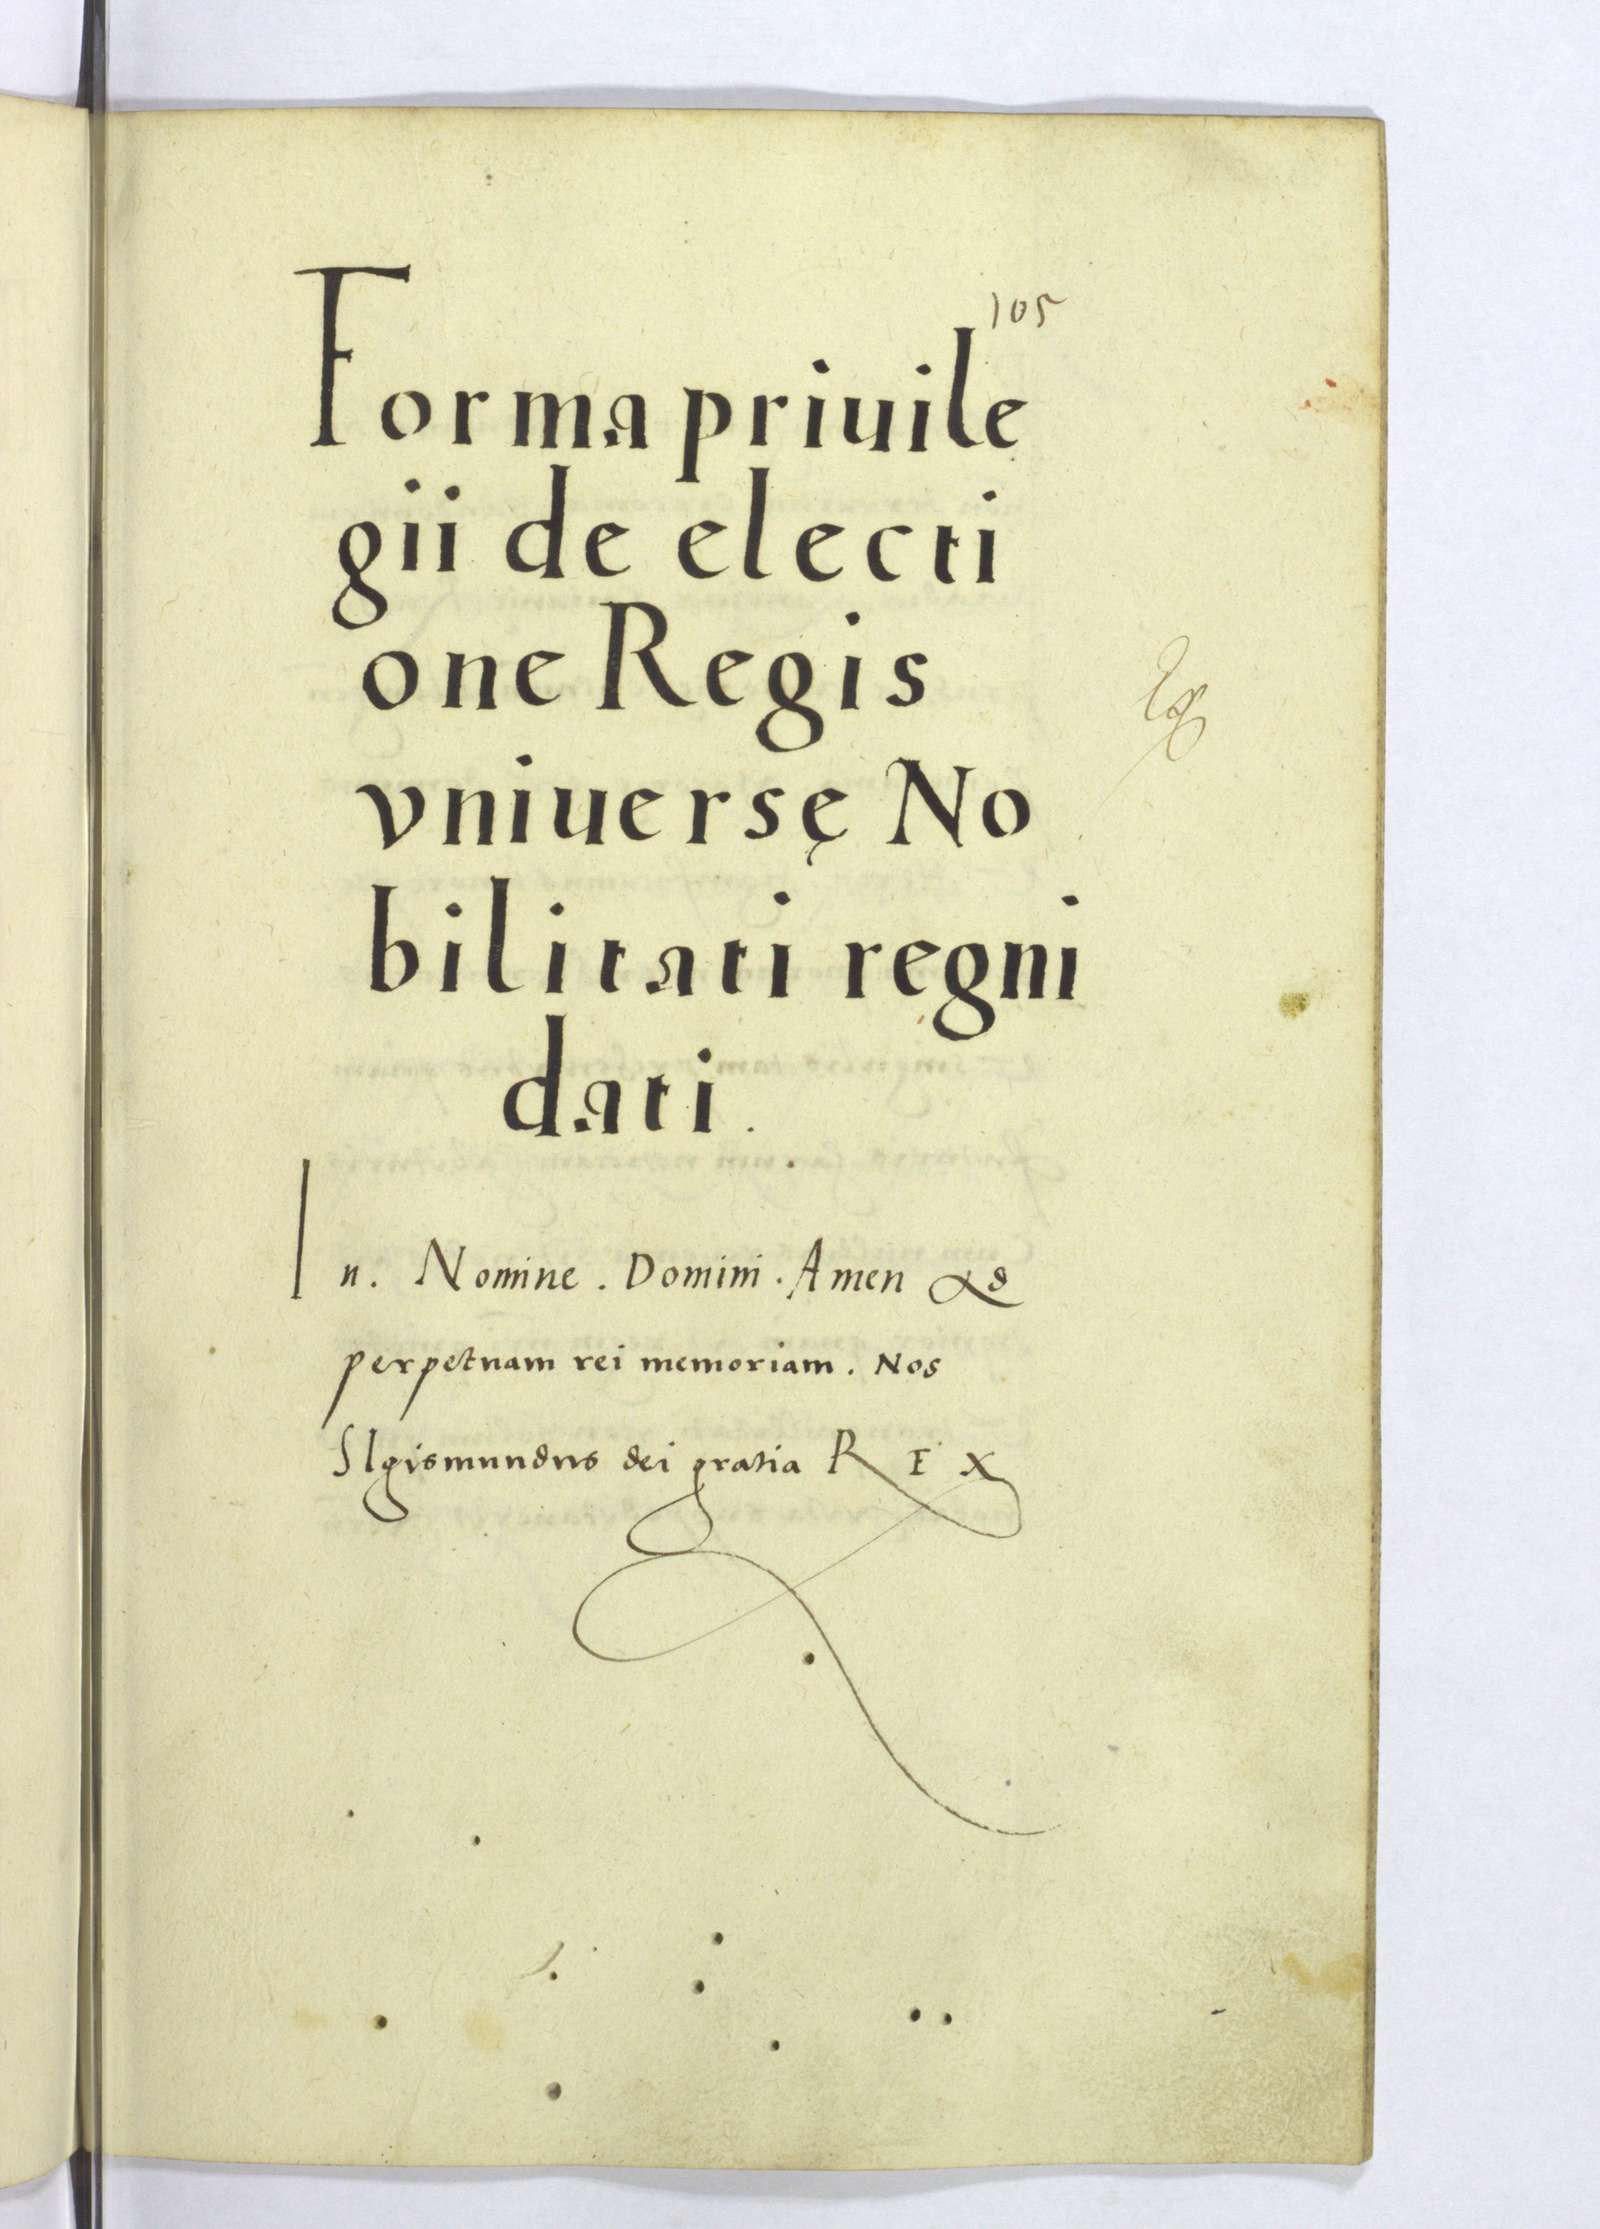 105
Forma priuile
gii de electi
one Regis
vniuersę No
bilitati regni
dati.
In. Nomine. Domini. Amen Ad
perpetuam rei memoriam. Nos
SIgismundus dei gratia REX